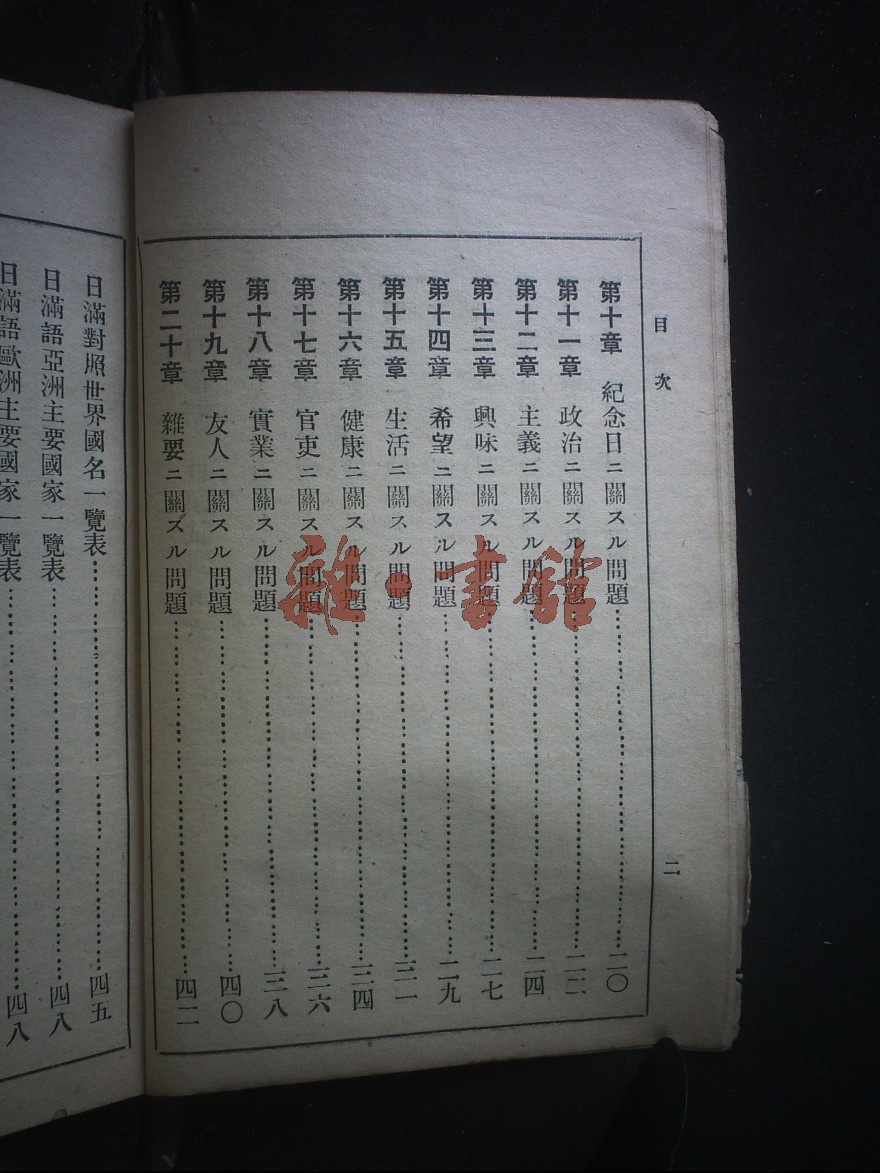 目次
二
第十章 紀念日ニ關スル問題……二〇
第十一章 政治ニ關スル問題……二二
第十二章 主義ニ關スル問題……二四
第十三章 興味ニ關スル問題……二七
第十四章 希望ニ關スル問題……二九
第十五章 生活ニ關スル問題……三一
第十六章 健康ニ關スル問題……三四
第十七章 官吏ニ關スル問題……三六
第十八章 實業ニ關スル問題……三八
第十九章 友人ニ關スル問題……四〇
第二十章 雜要ニ關スル問題……四二
日滿對照世界國名一覽表……四五
日滿語亞洲主要國家一覽表……四八
日滿語歐洲主要國家一覽表……四八
雜·書館